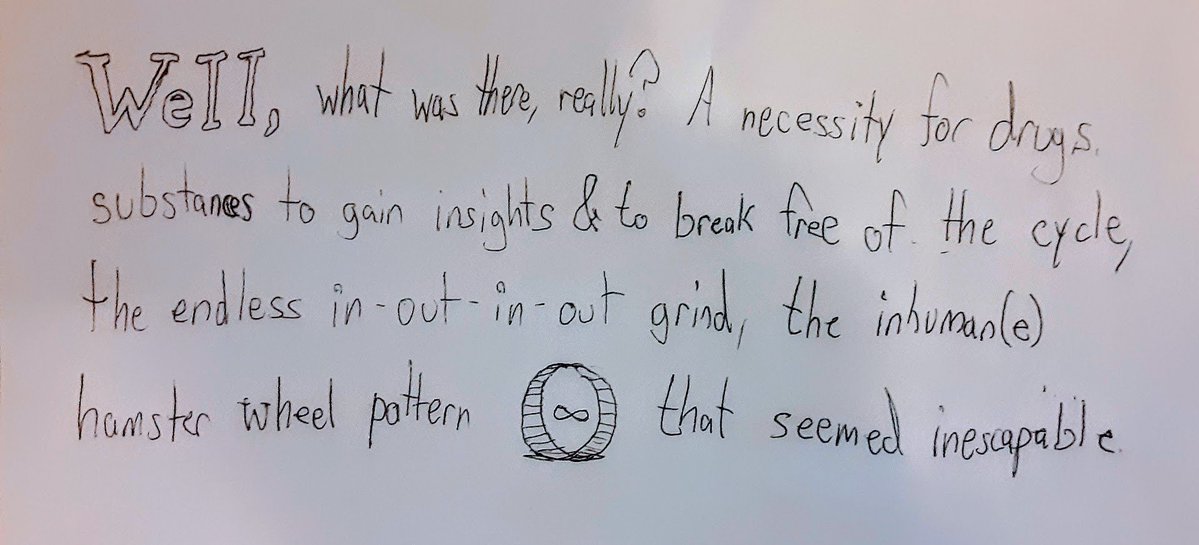 Well, what was there, really? A necessity for drugs.
substances to gain insights & to break free of the cycle,
the endless in-out-in-out grind, the inhuman(e)
hamster wheel pattern ∞ that seemed inescapable.